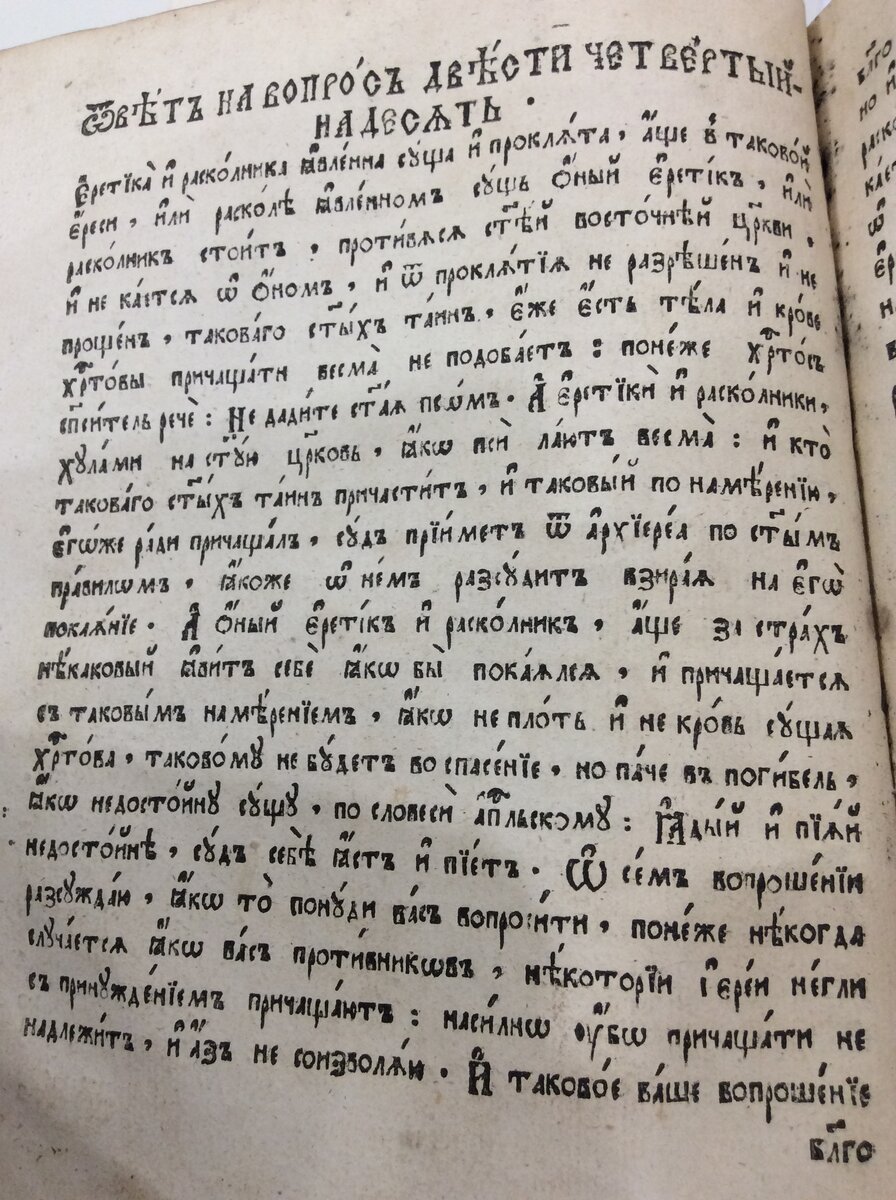 Ѿвѣ́тъ на вопро́съ двѣ́сти четве́ртый-
на́десѧть .
Є҆ретїка̀ и҆ раско́лника ꙗ҆вле́нна сꙋ́ща и҆ проклѧ́та , а҆́ще в̾ тако́вой
є҆́реси , и҆лѝ раско́лѣ ꙗ҆вле́нномъ сꙋ́щь ѻ҆́ный є҆рети́къ , и҆лѝ
раско́лникъ стои́тъ , проти́вѧсѧ ст҃ѣ́й восто́чнѣй цр҃кви ,
и҆ не ка́етсѧ ѡ҆ ѻ҆́номъ , и҆ ѿ проклѧ́тїѧ не разрѣше́нъ и҆ не
проще́нъ , такова́гѡ ст҃ы́хъ та́инъ , є҆́же є҆́сть тѣ́ла и҆ кро́ве
хрⷭ҇то́вы причаща́ти весма̀ не подоба́етъ : поне́же хрⷭ҇то́съ
сп҃си́тель речѐ : Не дади́те ст҃а́ѧ псѡ́мъ . А҆ є҆ретїкѝ и҆ раско́лники ,
хꙋла́ми на ст҃ꙋ́ю цр҃ковь , ꙗ҆́кѡ псѝ ла́ютъ весма̀ : и҆ кто̀
такова́го ст҃ы́хъ та́инъ причасти́тъ , и҆ таковы́й по намѣ́ренїю ,
є҆гѡ́же ра́ди причаща́лъ , сꙋ́дъ прїи́метъ ѿ а҆рхїере́а по ст҃ы́мъ
пра́вилѡмъ , ꙗ҆́коже ѡ҆ не́мъ разсꙋ́дитъ взира́ѧ на є҆гѡ̀
покаѧ́нїе . А҆ ѻ҆́ный є҆рети́къ и҆ раско́лникъ , а҆́ще за стра́хъ
нѣ́каковый ꙗ҆ви́тъ себѐ ꙗ҆́кѡ бы̀ пока́ѧлсѧ , и҆ причаща́етсѧ
съ таковы́мъ намѣ́ренїемъ , ꙗ҆́кѡ не пло́ть и҆ не кро́вь сꙋ́щаѧ
хрⷭ҇то́ва , таково́мꙋ не бꙋ́детъ во спасе́нїе , но па́че въ поги́бель ,
ꙗ҆́кѡ недосто́йнꙋ сꙋ́щꙋ , по словесѝ а҆пⷭ҇льскомꙋ : Ꙗ҆ды́й и҆ пїѧ́й
недосто́йнѣ , сꙋ́дъ себѣ̀ ꙗ҆́стъ и҆ пїе́тъ . Ѡ҆ се́мъ вопроше́нїи
разсꙋжда́ю , ꙗ҆́кѡ то̀ понꙋ́ди ва́съ вопроси́ти , поне́же нѣ́когда
слꙋча́етсѧ ꙗ҆́кѡ ва́съ проти́вникѡвъ , нѣ́которїи і҆ере́и не́гли
съ принꙋжде́нїемъ причаща́ютъ : наси́лнѡ ᲂу҆́бѡ причаща́ти не
надлежи́тъ , и҆ а҆́зъ не соизволѧ́ю . И҆ таково́е ва́ше вопроше́нїе
бл҃го